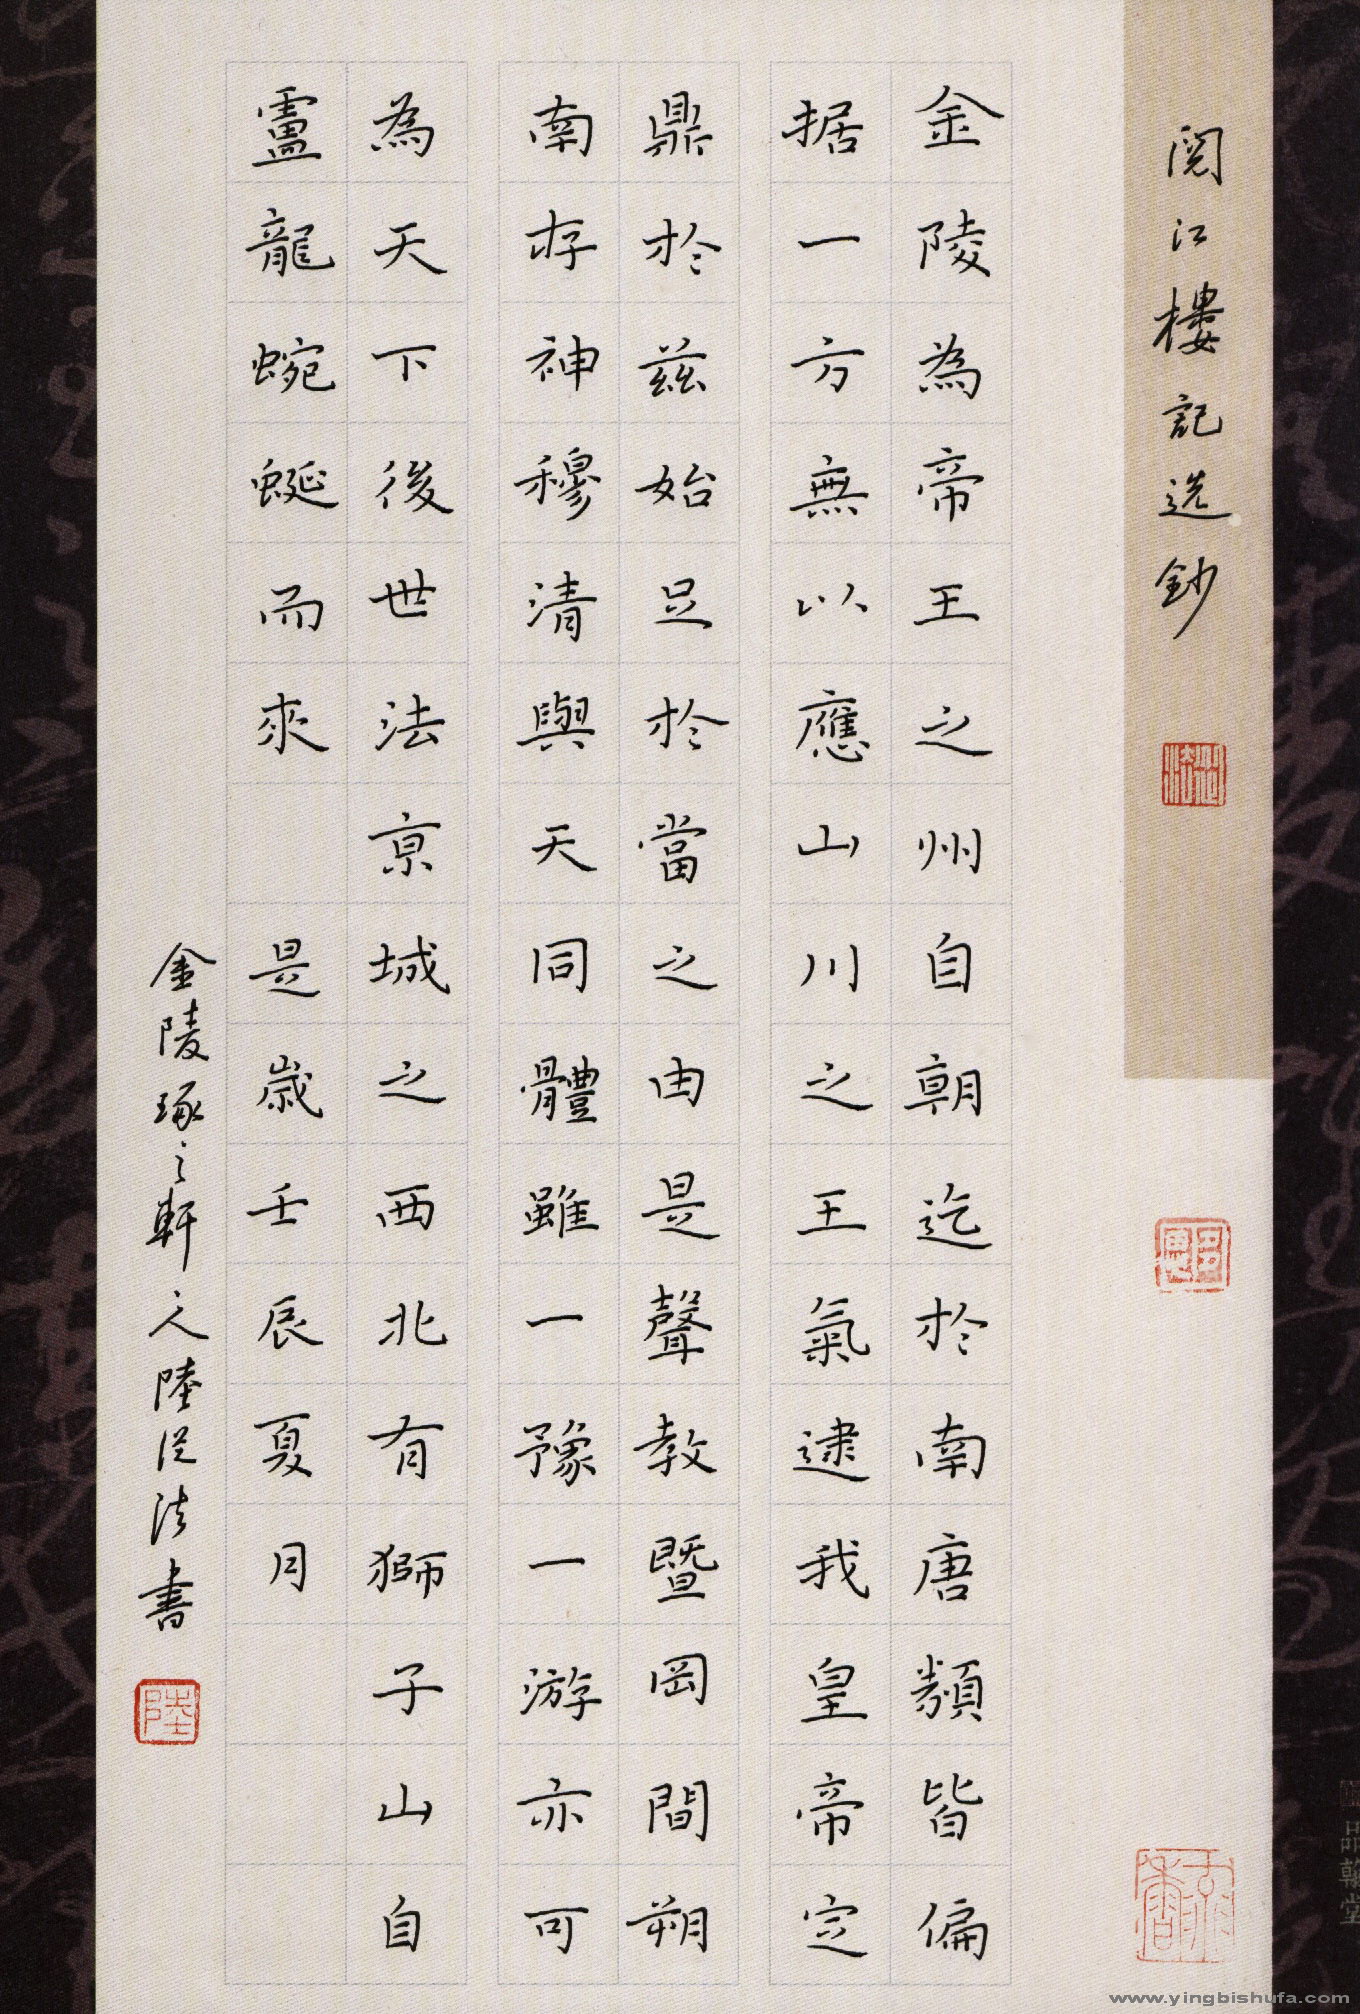 閱江樓記选鈔
金陵為帝王之州自朝迄於南唐類皆偏
据一方無以應山川之王氣逮我皇帝定
鼎於兹始足於當之由是聲教暨罔間朔
南存神穆清與天同體雖一豫一游亦可
為天下後世法京城之西北有獅子山自
盧龍蜿蜒而來 是歲壬辰夏月
金陵琢之軒之人陸從法書
陸
品翰堂
www.yingbishufa.com